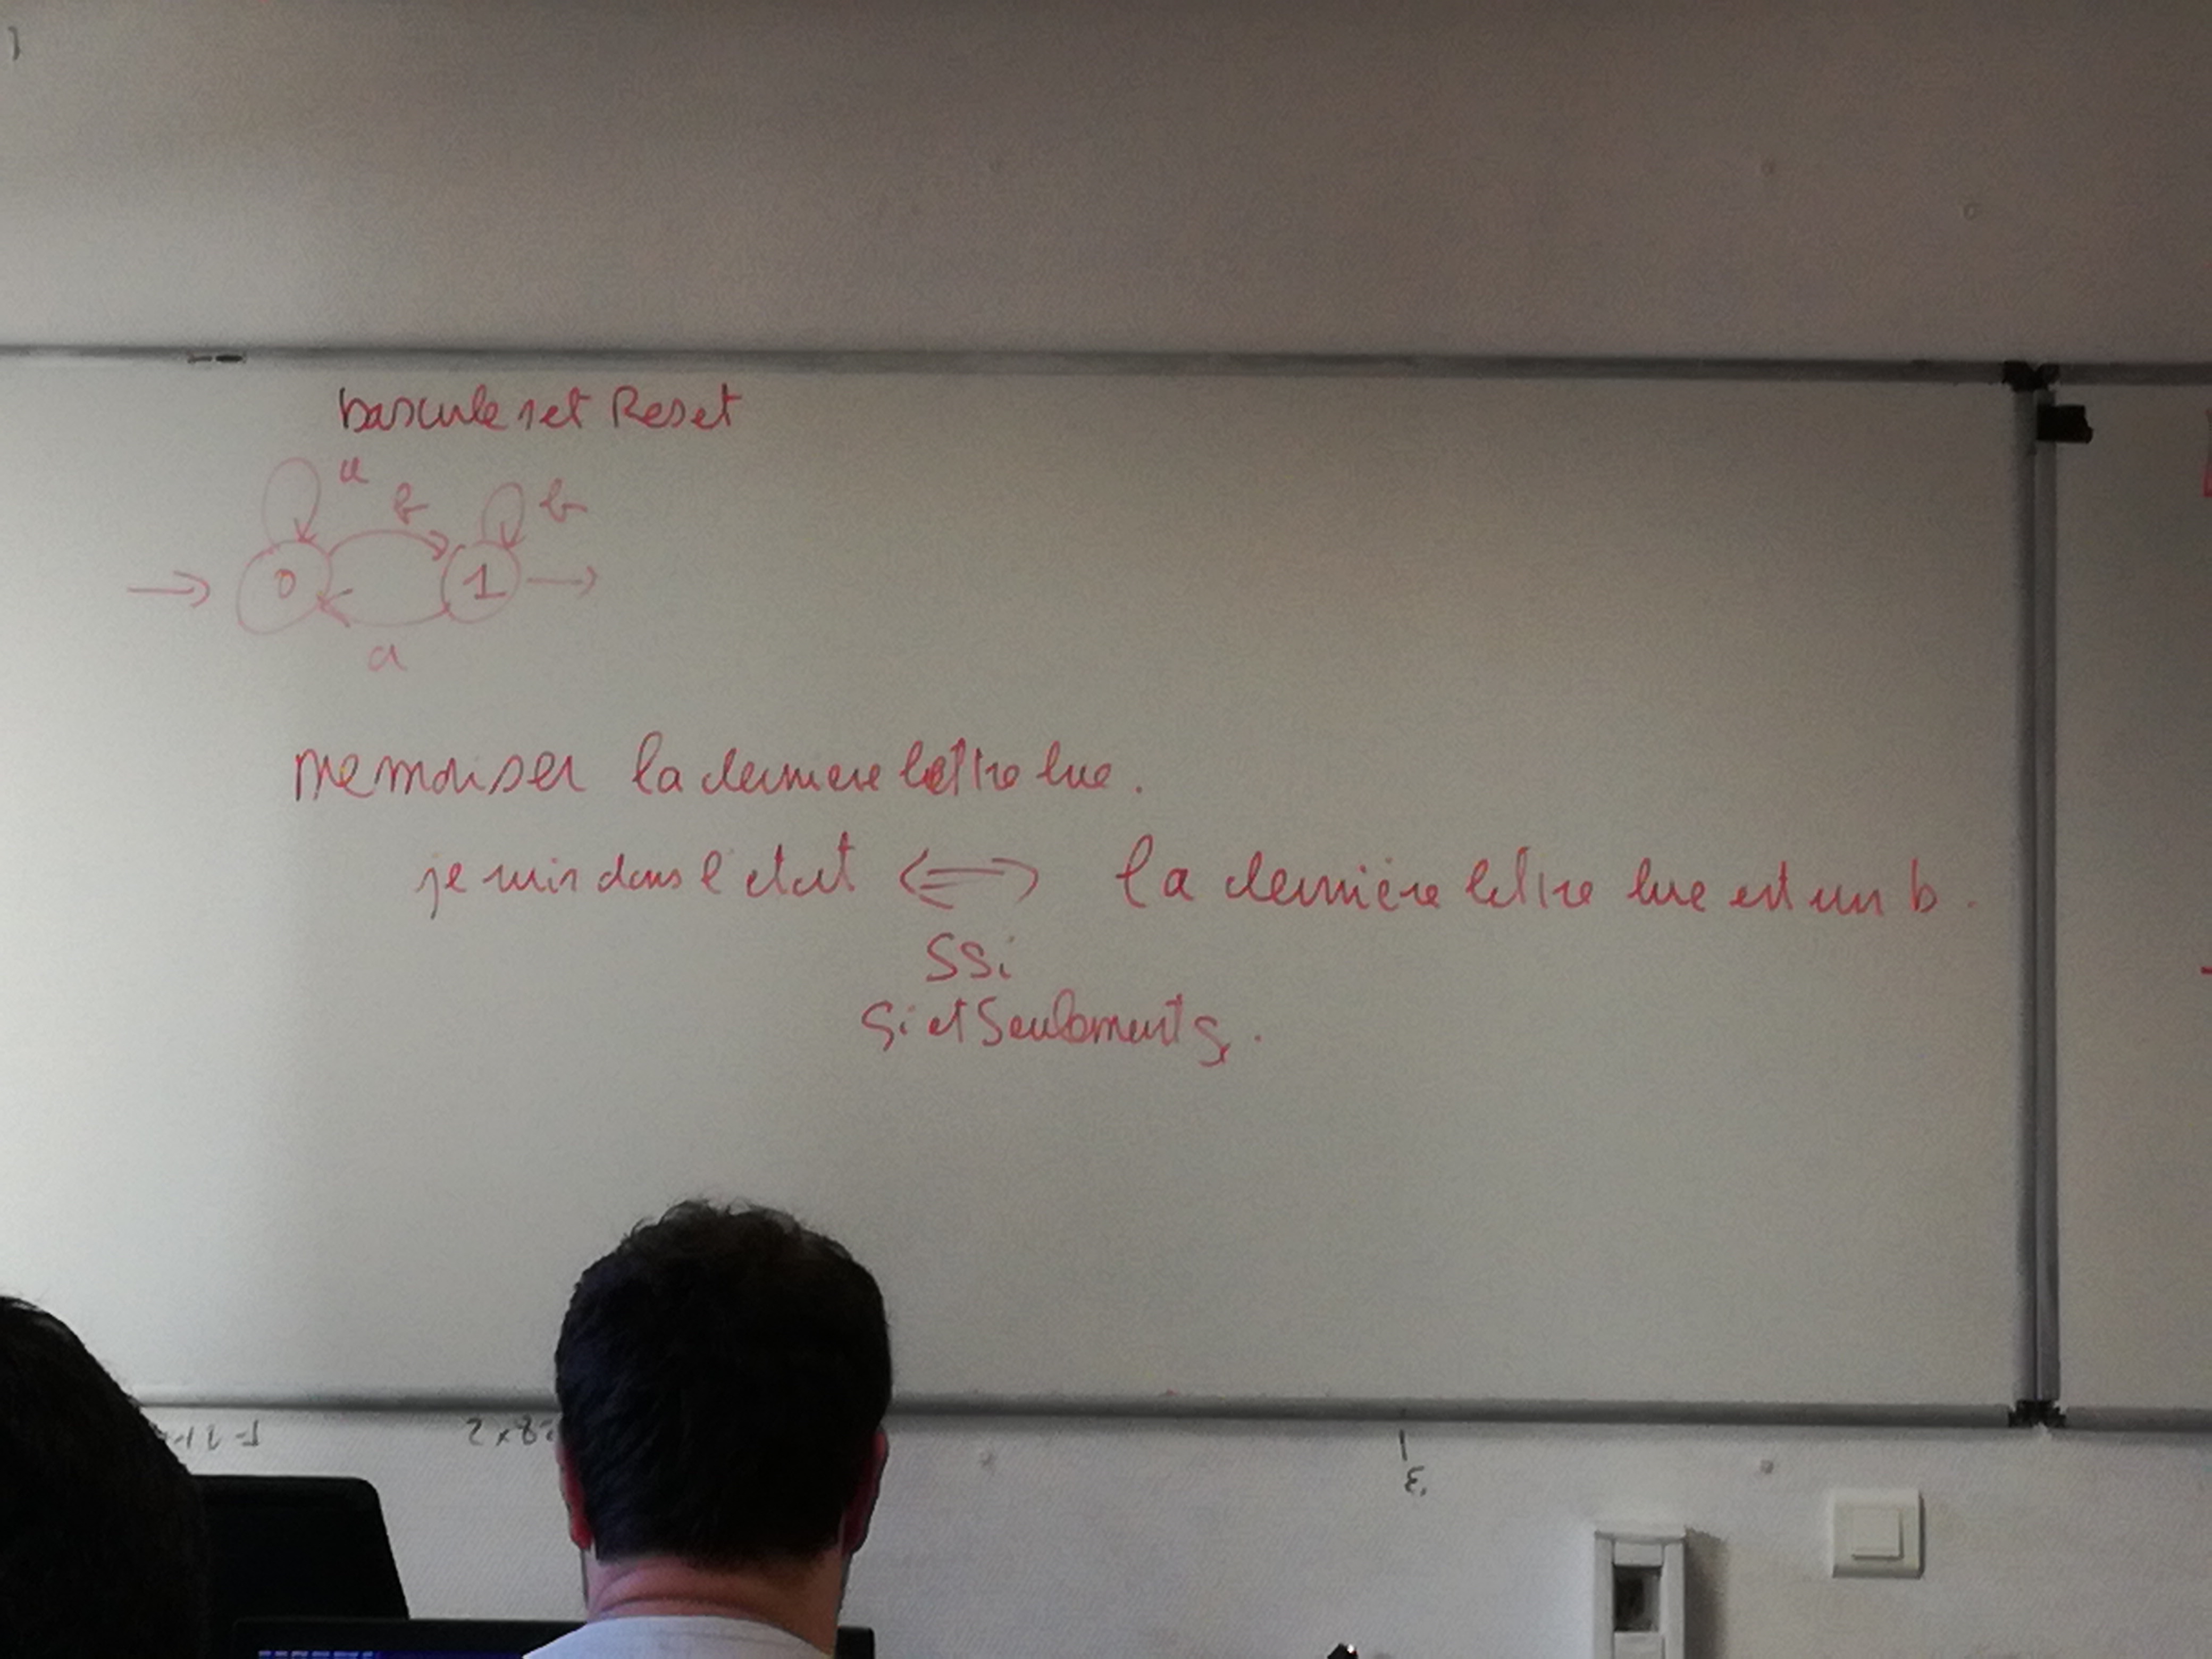 bascule set Reset
a
b
b
0
1
a
memoriser la derniere lettre lue.
je suis dans l'etat <=> la dernière lettre lue est un b.
SSi
Si et Seulement si.